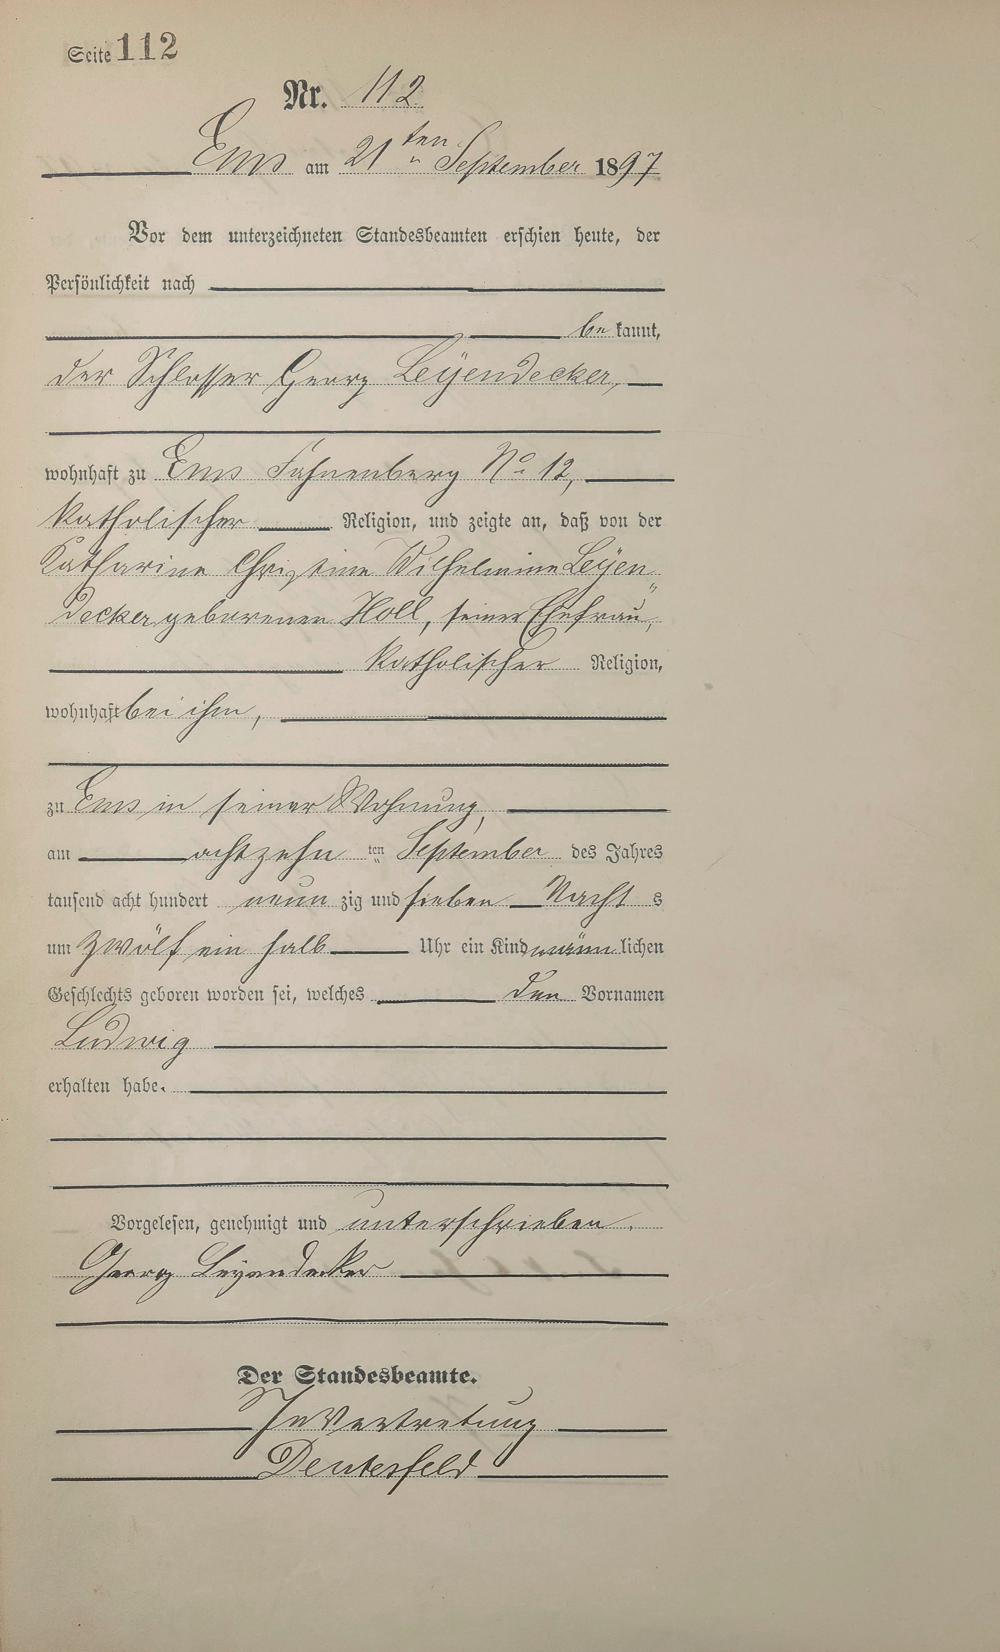 Seite 112
Nr. 112
Ems am 21ten September 1897
Vor dem unterzeichneten Standesbeamten erschien heute, der
Persönlichkeit nach
be kannt,
der Schlosser Georg Leÿendecker,
wohnhaft zu Ems Fahnenberg No 12,
katholischer Religion, und zeigte an, daß von der
Katharine Christine Wilhelmine Leÿen"
decker geborenen Holl, seiner Ehefrau,
katholischer Religion,
wohnhaft bei ihm,
zu Ems in seiner Wohnung,
am achtzehn ten September des Jahres
tausend acht hundert neun zig und sieben Nacht s
um zwölf ein halb Uhr ein Kind männ lichen
Geschlechts geboren worden sei, welches den Vornamen
Ludwig
erhalten habe.
Vorgelesen, genehmigt und unterschrieben.
Georg Leyendecker
Der Standesbeamte.
In Vertretung
Deutesfeld